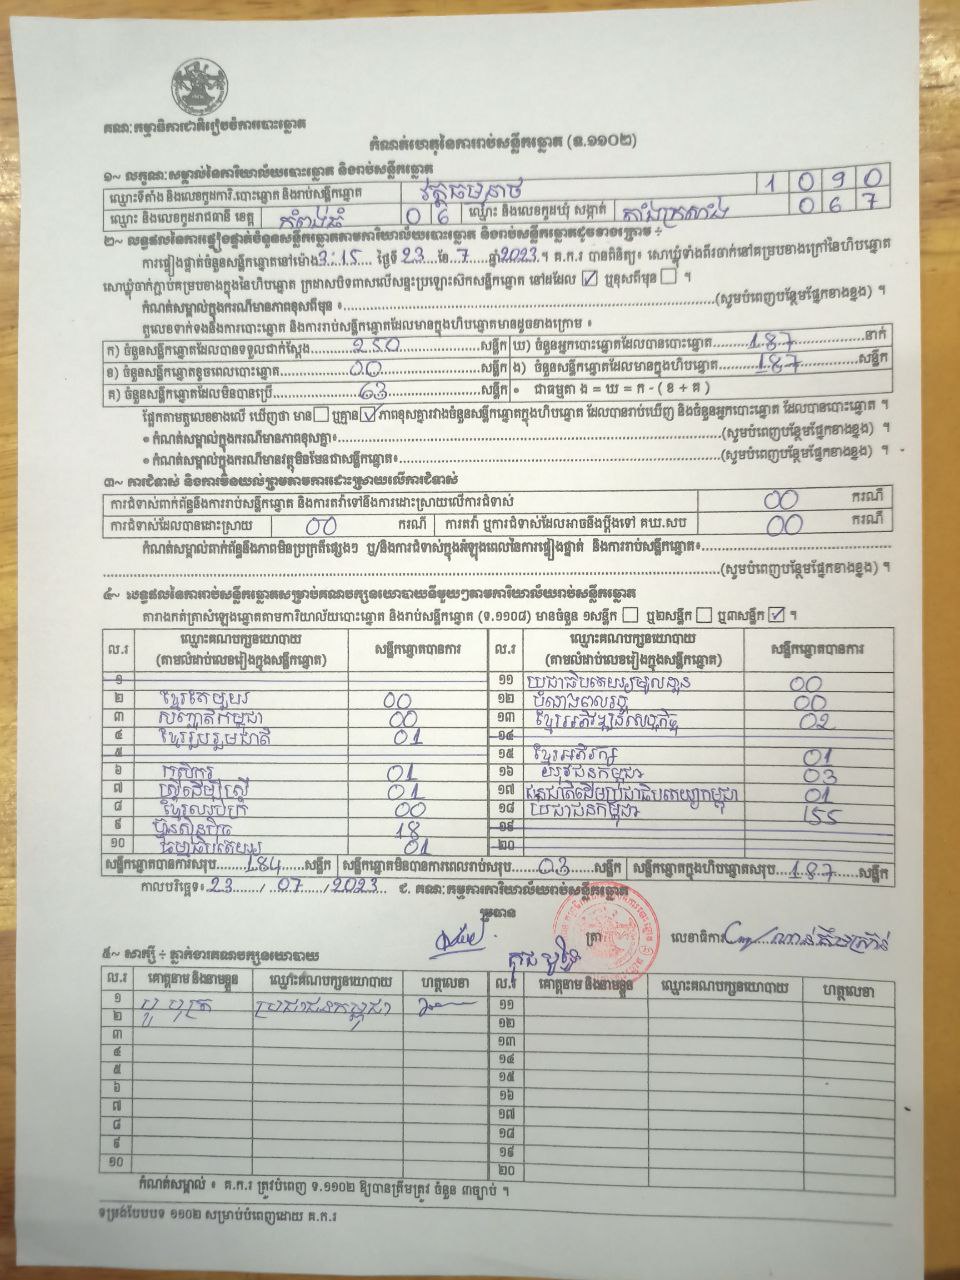 គណៈកម្មាធិការជាតិរៀបចំការបោះឆ្នោត
កំណត់ហេតុនៃការរាប់សន្លឹកឆ្នោត (ទ.១១០២)
១~ លក្ខណៈសម្គាល់នៃការិយាល័យបោះឆ្នោត និងរាប់សន្លឹកឆ្នោត
ឈ្មោះទីតាំង និងលេខកូដការិ.បោះឆ្នោត និងរាប់សន្លឹកឆ្នោត វត្តធម្មនាថ 1 0 9 0
ឈ្មោះ និងលេខកូដរាជធានី ខេត្ត កំពង់ធំ 0 6 ឈ្មោះ និងលេខកូដឃុំ សង្កាត់ តាំងក្រសាំង 0 6 7
២~ លទ្ធផលនៃការផ្ទៀងផ្ទាត់ចំនួនសន្លឹកឆ្នោតតាមការិយាល័យបោះឆ្នោត និងរាប់សន្លឹកឆ្នោតដូចខាងក្រោម ÷
ការផ្ទៀងផ្ទាត់ចំនួនសន្លឹកឆ្នោតនៅម៉ោង 3:15 ថ្ងៃទី 23 ខែ 7 ឆ្នាំ 2023 ។ គ.ក.រ បានពិនិត្យ៖ សោឃ្លុំទាំងពីរចាក់នៅគម្របខាងក្រៅនៃហិបឆ្នោត
សោឃ្លុំចាក់ភ្ជាប់គម្របខាងក្នុងនៃហិបឆ្នោត ក្រដាសបិទពាសលើសន្ទះប្រឡោះស៊កសន្លឹកឆ្នោត នៅដដែល ☑ ឬខុសពីមុន ☐ ។
កំណត់សម្គាល់ក្នុងករណីមានភាពខុសពីមុន ៖ (សូមបំពេញបន្ថែមផ្នែកខាងខ្នង) ។
តួលេខទាក់ទងនឹងការបោះឆ្នោត និងការរាប់សន្លឹកឆ្នោតដែលមានក្នុងហិបឆ្នោតមានដូចខាងក្រោម ៖
ក) ចំនួនសន្លឹកឆ្នោតដែលបានទទួលជាក់ស្តែង 250 សន្លឹក ឃ) ចំនួនអ្នកបោះឆ្នោតដែលបានបោះឆ្នោត 187 នាក់
ខ) ចំនួនសន្លឹកឆ្នោតខូចពេលបោះឆ្នោត 00 សន្លឹក ង) ចំនួនសន្លឹកឆ្នោតដែលមានក្នុងហិបឆ្នោត 187 សន្លឹក
គ) ចំនួនសន្លឹកឆ្នោតដែលមិនបានប្រើ 63 សន្លឹក • ជាធម្មតា ង = ឃ = ក - ( ខ + គ )
ផ្អែកតាមតួលេខខាងលើ ឃើញថា មាន ☐ ឬគ្មាន ☑ ភាពខុសគ្នារវាងចំនួនសន្លឹកឆ្នោតក្នុងហិបឆ្នោត ដែលបានរាប់ឃើញ និងចំនួនអ្នកបោះឆ្នោត ដែលបានបោះឆ្នោត ។
• កំណត់សម្គាល់ក្នុងករណីមានភាពខុសគ្នា៖ (សូមបំពេញបន្ថែមផ្នែកខាងខ្នង) ។
• កំណត់សម្គាល់ក្នុងករណីមានវត្ថុមិនមែនជាសន្លឹកឆ្នោត៖ (សូមបំពេញបន្ថែមផ្នែកខាងខ្នង) ។
៣~ ការជំទាស់ និងការមិនយល់ព្រមតាមការដោះស្រាយលើការជំទាស់
ការជំទាស់ពាក់ព័ន្ធនឹងការរាប់សន្លឹកឆ្នោត និងការតវ៉ាទៅនឹងការដោះស្រាយលើការជំទាស់ 00 ករណី
ការជំទាស់ដែលបានដោះស្រាយ 00 ករណី ការតវ៉ា ឬការជំទាស់ដែលអាចនឹងប្តឹងទៅ គឃ.សប 00 ករណី
កំណត់សម្គាល់ពាក់ព័ន្ធនឹងភាពមិនប្រក្រតីផ្សេងៗ ឬ/និងការជំទាស់ក្នុងអំឡុងពេលនៃការផ្ទៀងផ្ទាត់ និងការរាប់សន្លឹកឆ្នោត៖
(សូមបំពេញបន្ថែមផ្នែកខាងខ្នង) ។
៤~ លទ្ធផលនៃការរាប់សន្លឹកឆ្នោតសម្រាប់គណបក្សនយោបាយនីមួយៗតាមការិយាល័យរាប់សន្លឹកឆ្នោត
តារាងកត់ត្រាសំឡេងឆ្នោតតាមការិយាល័យបោះឆ្នោត និងរាប់សន្លឹកឆ្នោត (ទ.១១០៨) មានចំនួន ១សន្លឹក ☐ ឬ២សន្លឹក ☐ ឬ៣សន្លឹក ☑ ។
ល.រ ឈ្មោះគណបក្សនយោបាយ (តាមលំដាប់លេខរៀងក្នុងសន្លឹកឆ្នោត) សន្លឹកឆ្នោតបានការ ល.រ ឈ្មោះគណបក្សនយោបាយ (តាមលំដាប់លេខរៀងក្នុងសន្លឹកឆ្នោត) សន្លឹកឆ្នោតបានការ
១ ១១ ប្រជាធិបតេយ្យមូលដ្ឋាន 00
២ ខ្មែរតែមួយ 00 ១២ បំណងពលរដ្ឋ 00
៣ សញ្ជាតិកម្ពុជា 00 ១៣ ខ្មែរអភិវឌ្ឍន៍សេដ្ឋកិច្ច 02
៤ ខ្មែររួបរួមជាតិ 01 ១៤
៥ ១៥ ខ្មែរអភិរក្ស 01
៦ កសិករ 01 ១៦ យុវជនកម្ពុជា 03
៧ ស្ត្រីដើម្បីស្ត្រី 01 ១៧ ជនជាតិដើមប្រជាធិបតេយ្យកម្ពុជា 01
៨ ខ្មែរឈប់ក្រ 00 ១៨ ប្រជាជនកម្ពុជា 155
៩ ហ៊្វុនស៊ិនប៉ិច 18 ១៩
១០ ធម្មាធិបតេយ្យ 01 ២០
សន្លឹកឆ្នោតបានការសរុប 184 សន្លឹក សន្លឹកឆ្នោតមិនបានការពេលរាប់សរុប 03 សន្លឹក សន្លឹកឆ្នោតក្នុងហិបឆ្នោតសរុប 187 សន្លឹក
កាលបរិច្ឆេទ៖ 23 / 07 / 2023 ជ. គណៈកម្មការការិយាល័យរាប់សន្លឹកឆ្នោត
ប្រធាន ត្រា លេខាធិការ
៥~ សាក្សី ÷ ភ្នាក់ងារគណបក្សនយោបាយ
ល.រ គោត្តនាម និងនាមខ្លួន ឈ្មោះគណបក្សនយោបាយ ហត្ថលេខា ល.រ គោត្តនាម និងនាមខ្លួន ឈ្មោះគណបក្សនយោបាយ ហត្ថលេខា
១ ប្រជាជនកម្ពុជា ១១
២ ១២
៣ ១៣
៤ ១៤
៥ ១៥
៦ ១៦
៧ ១៧
៨ ១៨
៩ ១៩
១០ ២០
កំណត់សម្គាល់ ៖ គ.ក.រ ត្រូវបំពេញ ទ.១១០២ ឱ្យបានត្រឹមត្រូវ ចំនួន ៣ច្បាប់ ។
ទម្រង់បែបបទ ១១០២ សម្រាប់បំពេញដោយ គ.ក.រ